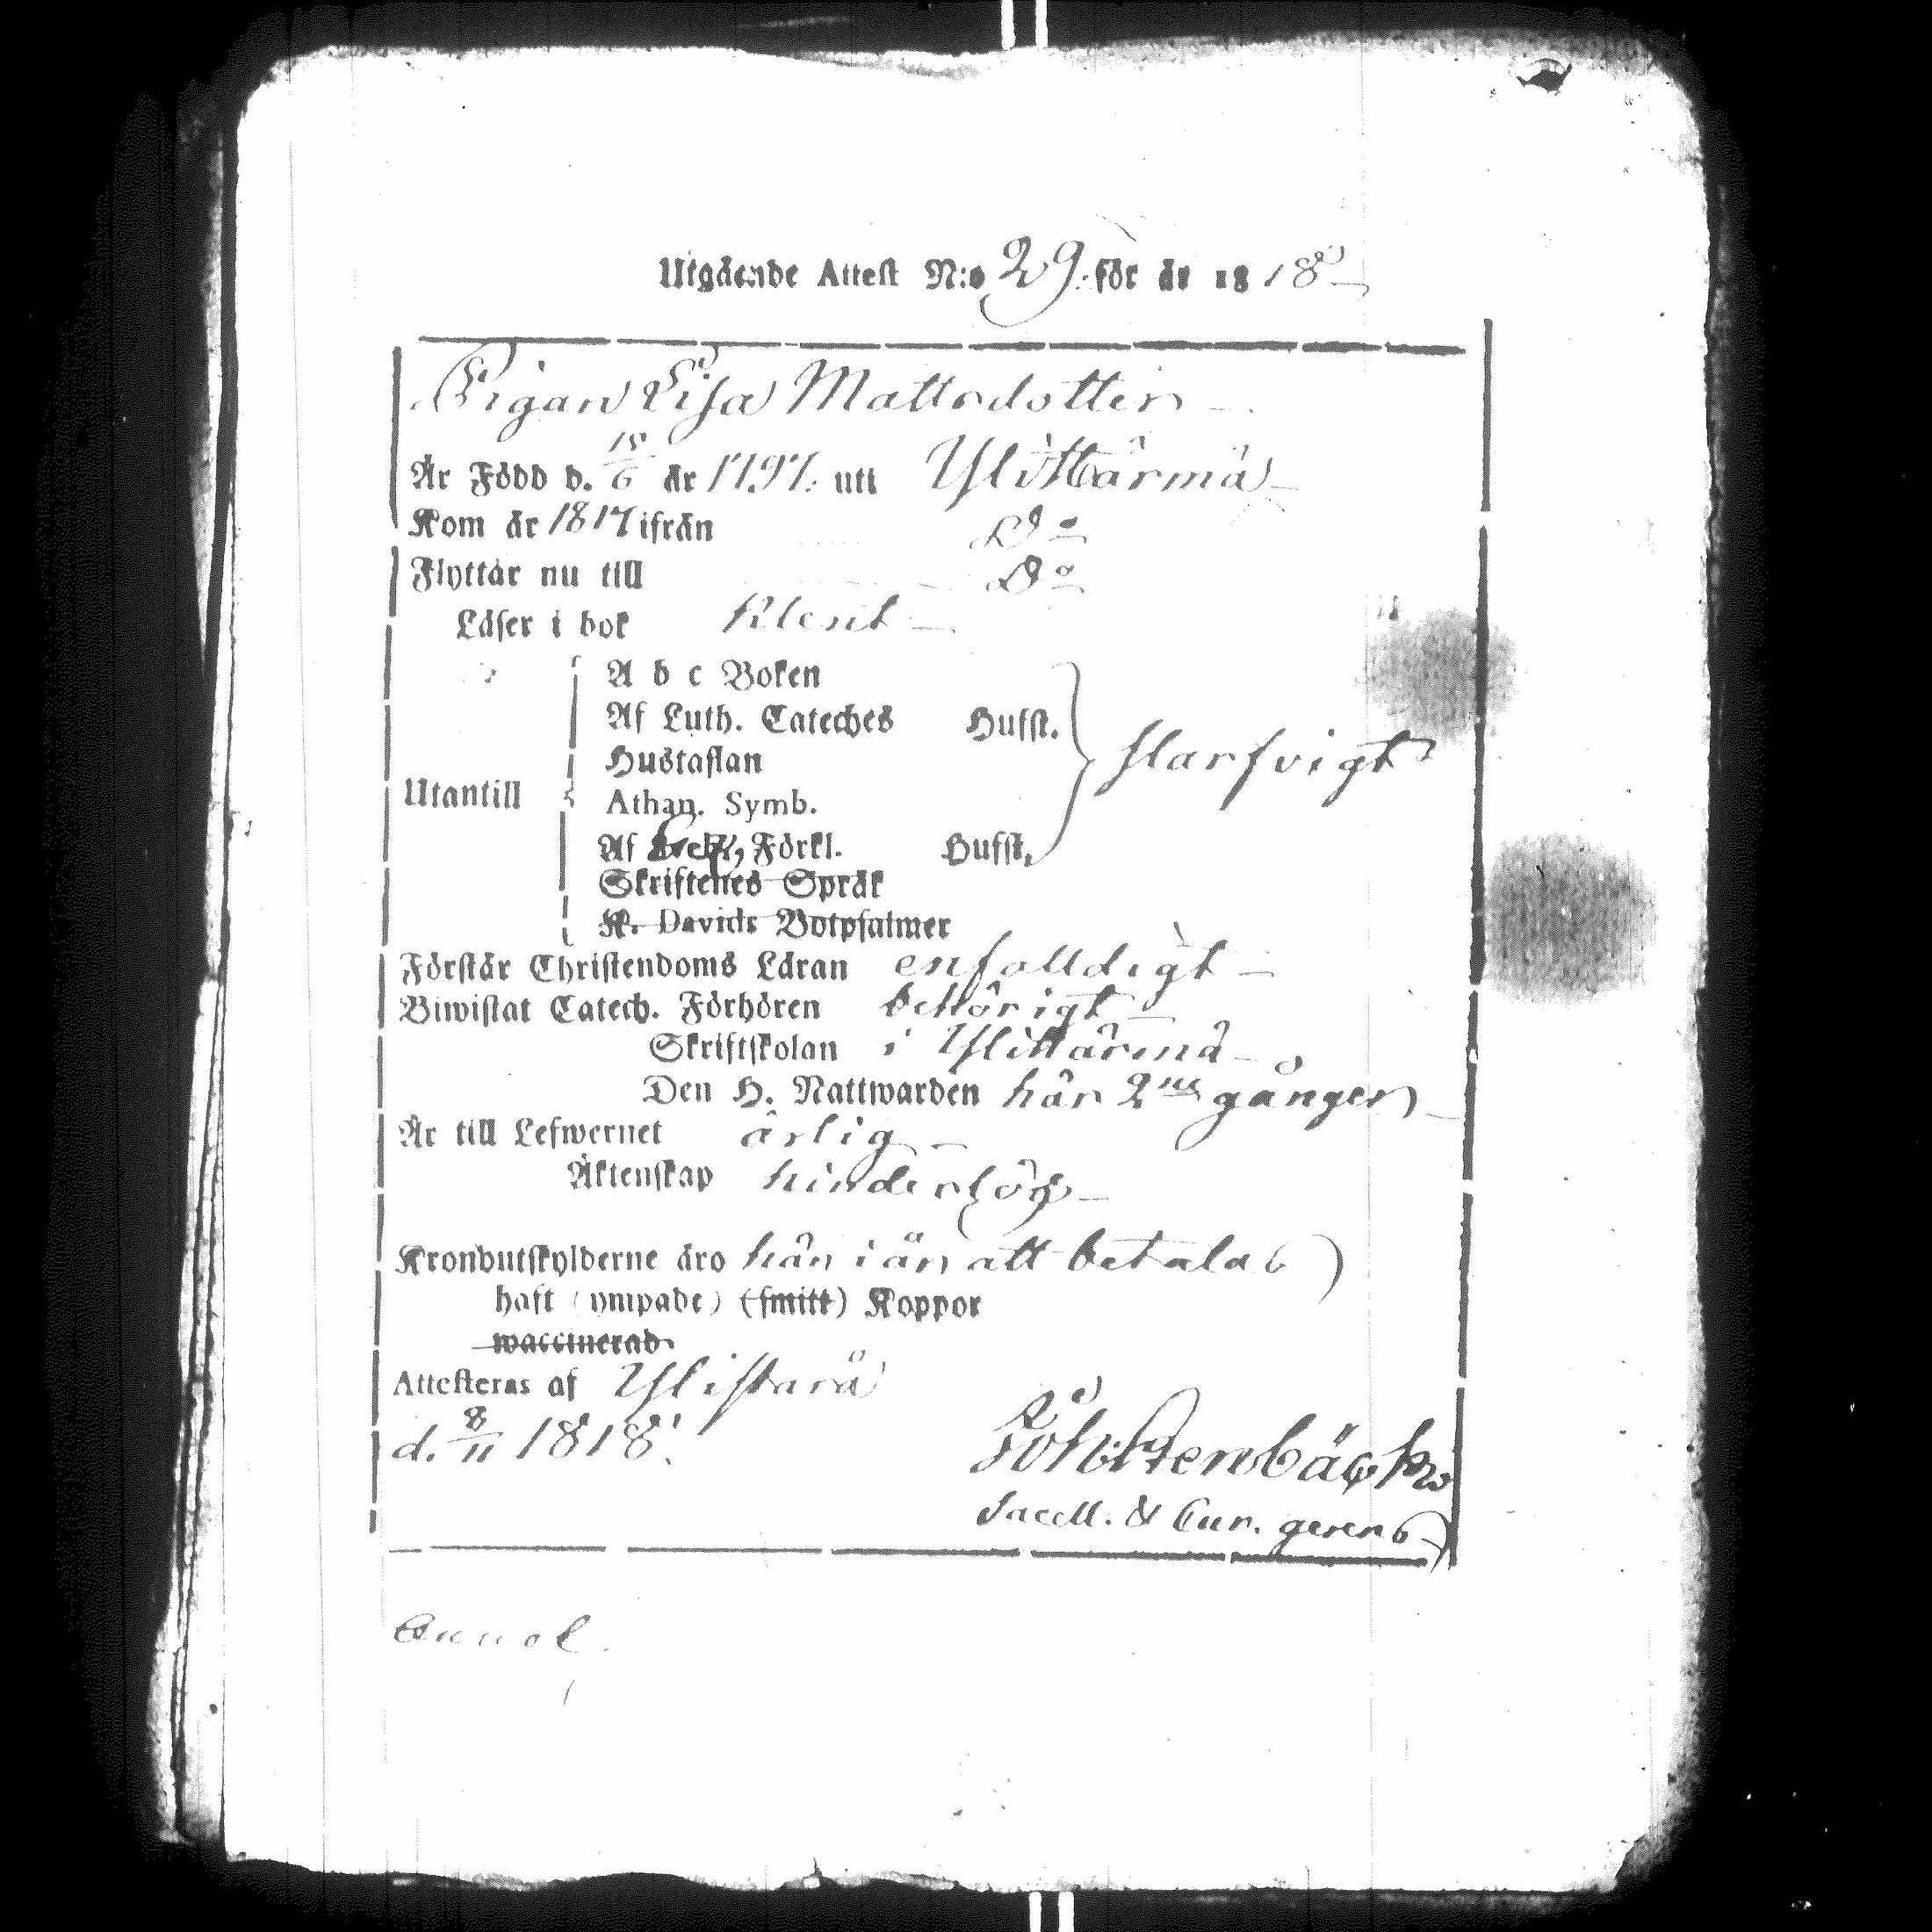 Utgående Attest N:o 29. för år 1818
Pigan Lisa Mattsdotter
Är Född d. 15/6 år 1797. uti Ylihärmä
Kom år 1817 ifrån Do
Flyttar nu till Do
Läser i bok klent
A b c Boken
Af Luth. Cateches Hufst.
Hustaflan
Utantill Athan. Symb. slarfvigt
Af Förkl. Hufst.
Skriftenes Språk
K. Davids Botpsalmer
Förstår Christendoms Läran enfalldigt
Biwistat Catech. Förhören behörigt
Skriftskolan i Ylihärmä
Den H. Nattwarden här 2ne gånger
Är till Lefwernet ärlig
Äktenskap hinderlös
Kronoutskylderne äro här i år att betalas
haft (ympade) (smitt) Koppor
waccinerad
Attesteras af Ylistaro
d. 8/11 1818.
Sacell. & Cur. gerens